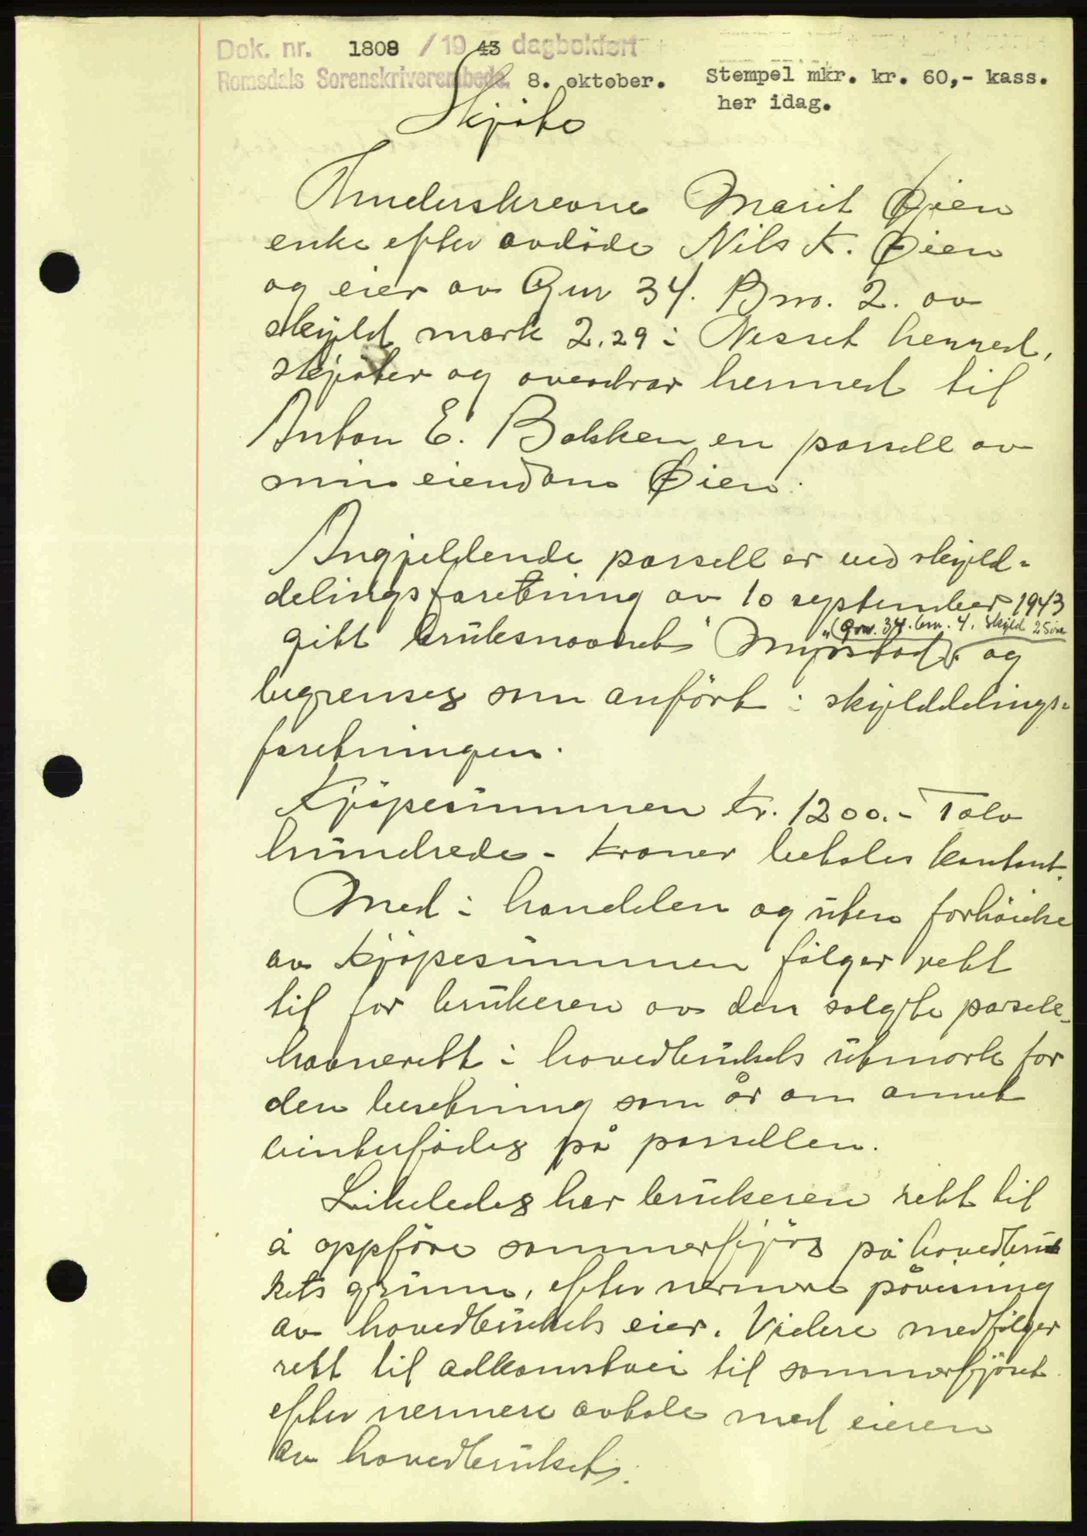 Dok. nr. 1808 / 19 43 dagbokført
Romsdals Sorenskriverembede. 8. oktober. Stempel mkr. kr. 60,- kass.
her idag.
Skjöte
Underskrevne Marit Øien
enke efter avdöde Nils K. Øien
og eier av Gnr 34. Bnr. 2. av
skyld mark 2.29 i Nesset herred,
skjöter og overdrar hermed til
Anton E. Bakken en parsell av
min eiendom Øien.
Angjeldende parsell er ved skyld-
delingsforetning av 10 september 1943
(gnr. 34. bnr. 4. skyld 25 öre
gitt bruksnavnet "Myrstad", og
begrenses som anfört i skylddelings-
foretningen.
Kjöpesummen kr. 1200.- Tolv
hundrede - kroner betales kontant.
Med i handelen og uten forhöielse
av kjöpesummen fölger rett
til for brukeren av den solgte parsell-
havnerett i hovedbrukets utmark for
den besetning som år om annet
vinterfödes på parsellen.
Likeledes har brukeren rett til
å oppföre sommerfjös på hovedbru-
kets grunn, efter nermere påvisning
av hovedbrukets eier. Videre medfölger
rett til adkomstvei til sommerfjöset
efter nermere avtale med eieren
av hovedbruket.